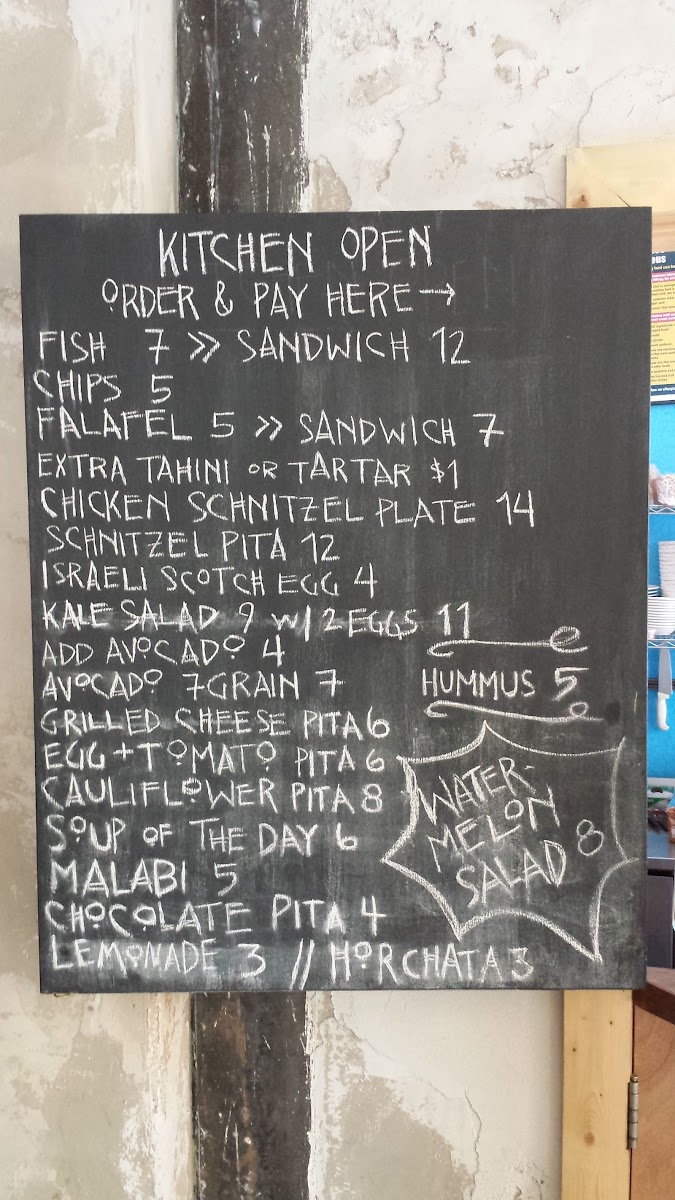 KITCHEN OPEN
ORDER & PAY HERE →
FISH 7 >> SANDWICH 12
CHIPS 5
FALAFEL 5 >> SANDWICH 7
EXTRA TAHINI OR TARTAR $1
CHICKEN SCHNITZEL PLATE 14
SCHNITZEL PITA 12
ISRAELI SCOTCH EGG 4
KALE SALAD 9 W/ 2 EGGS 11
ADD AVOCADO 4
AVOCADO 7GRAIN 7
GRILLED CHEESE PITA 6
EGG + TOMATO PITA 6
CAULIFLOWER PITA 8
SOUP OF THE DAY 6
MALABI 5
CHOCOLATE PITA 4
LEMONADE 3 // HORCHATA 3
HUMMUS 5
WATER-
MELON
SALAD 8